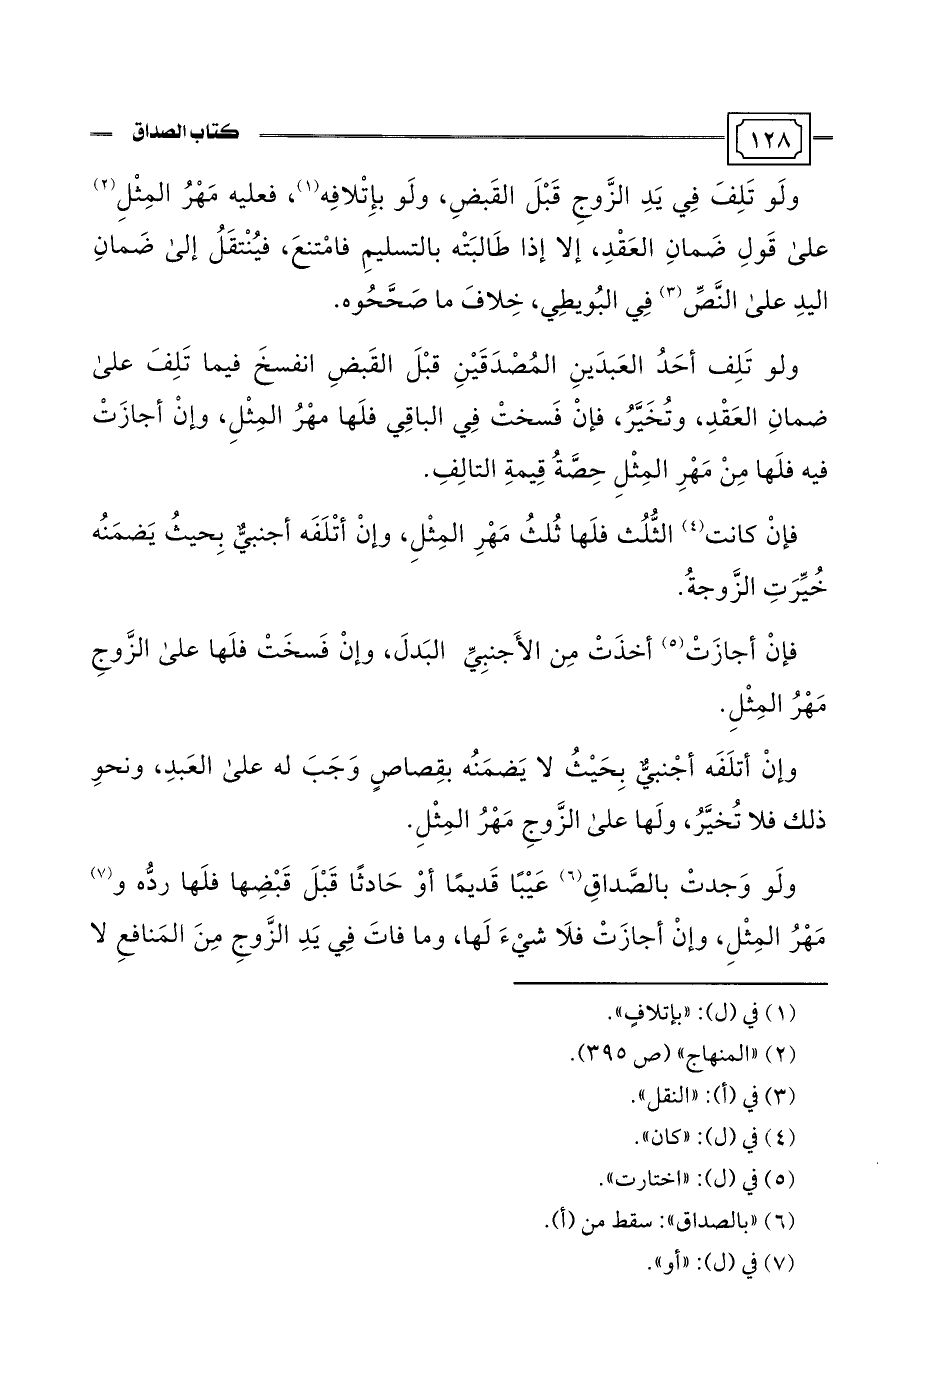 ١٢٨ كتاب الصداق
ولَو تَلِفَ فِي يَدِ الزَّوجِ قَبْلَ القَبضِ، ولَو بإِتْلافِه(١)، فعليه مَهْرُ المِثْلِ(٢)
علىٰ قَولِ ضَمانِ العَقْدِ، إلا إذا طَالَبَتْه بالتسليمِ فامْتنعَ، فيُنْتقَلُ إلىٰ ضَمانِ
اليدِ علىٰ النَّصِّ(٣) فِي البُويطِي، خِلافَ ما صَحَّحُوه.
ولو تَلِف أحَدُ العَبدَينِ المُصْدَقَيْنِ قبْلَ القَبضِ انفسخَ فيما تَلِفَ علىٰ
ضمانِ العَقْدِ، وتُخَيَّرُ، فإنْ فَسختْ فِي الباقِي فلَها مهْرُ المِثْلِ، وإنْ أجازَتْ
فيه فلَها مِنْ مَهْرِ المِثْلِ حِصَّةُ قِيمةِ التالِفِ.
فإنْ كانت(٤) الثُّلُث فلَها ثُلثُ مَهْرِ المِثْلِ، وإنْ أتْلَفَه أجنبيٌّ بِحيثُ يَضمَنُه
خُيِّرَتِ الزَّوجةُ.
فإنْ أجازَتْ(٥) أخذَتْ مِن الأَجنبِيِّ البَدلَ، وإنْ فَسخَتْ فلَها علىٰ الزَّوجِ
مَهْرُ المِثْلِ.
وإنْ أتلَفَه أجْنبيٌّ بِحَيْثُ لا يَضمَنُه بقِصاصٍ وَجَبَ له علىٰ العَبدِ، ونحوِ
ذلك فلا تُخيَّرُ، ولَها علىٰ الزَّوجِ مَهْرُ المِثْلِ.
ولَو وَجدتْ بالصَّداقِ(٦) عَيْبًا قَديمًا أوْ حَادثًا قَبْلَ قَبْضِها فلَها ردُّه و(٧)
مَهْرُ المِثْلِ، وإنْ أجازَتْ فلَا شيْءَ لَها، وما فاتَ فِي يَدِ الزَّوجِ مِنَ المَنافعِ لا
(١) في (ل): «بإتلافٍ».
(٢) «المنهاج» (ص ٣٩٥).
(٣) في (أ): «النقل».
(٤) في (ل): «كان».
(٥) في (ل): «اختارت».
(٦) «بالصداق»: سقط من (أ).
(٧) في (ل): «أو».